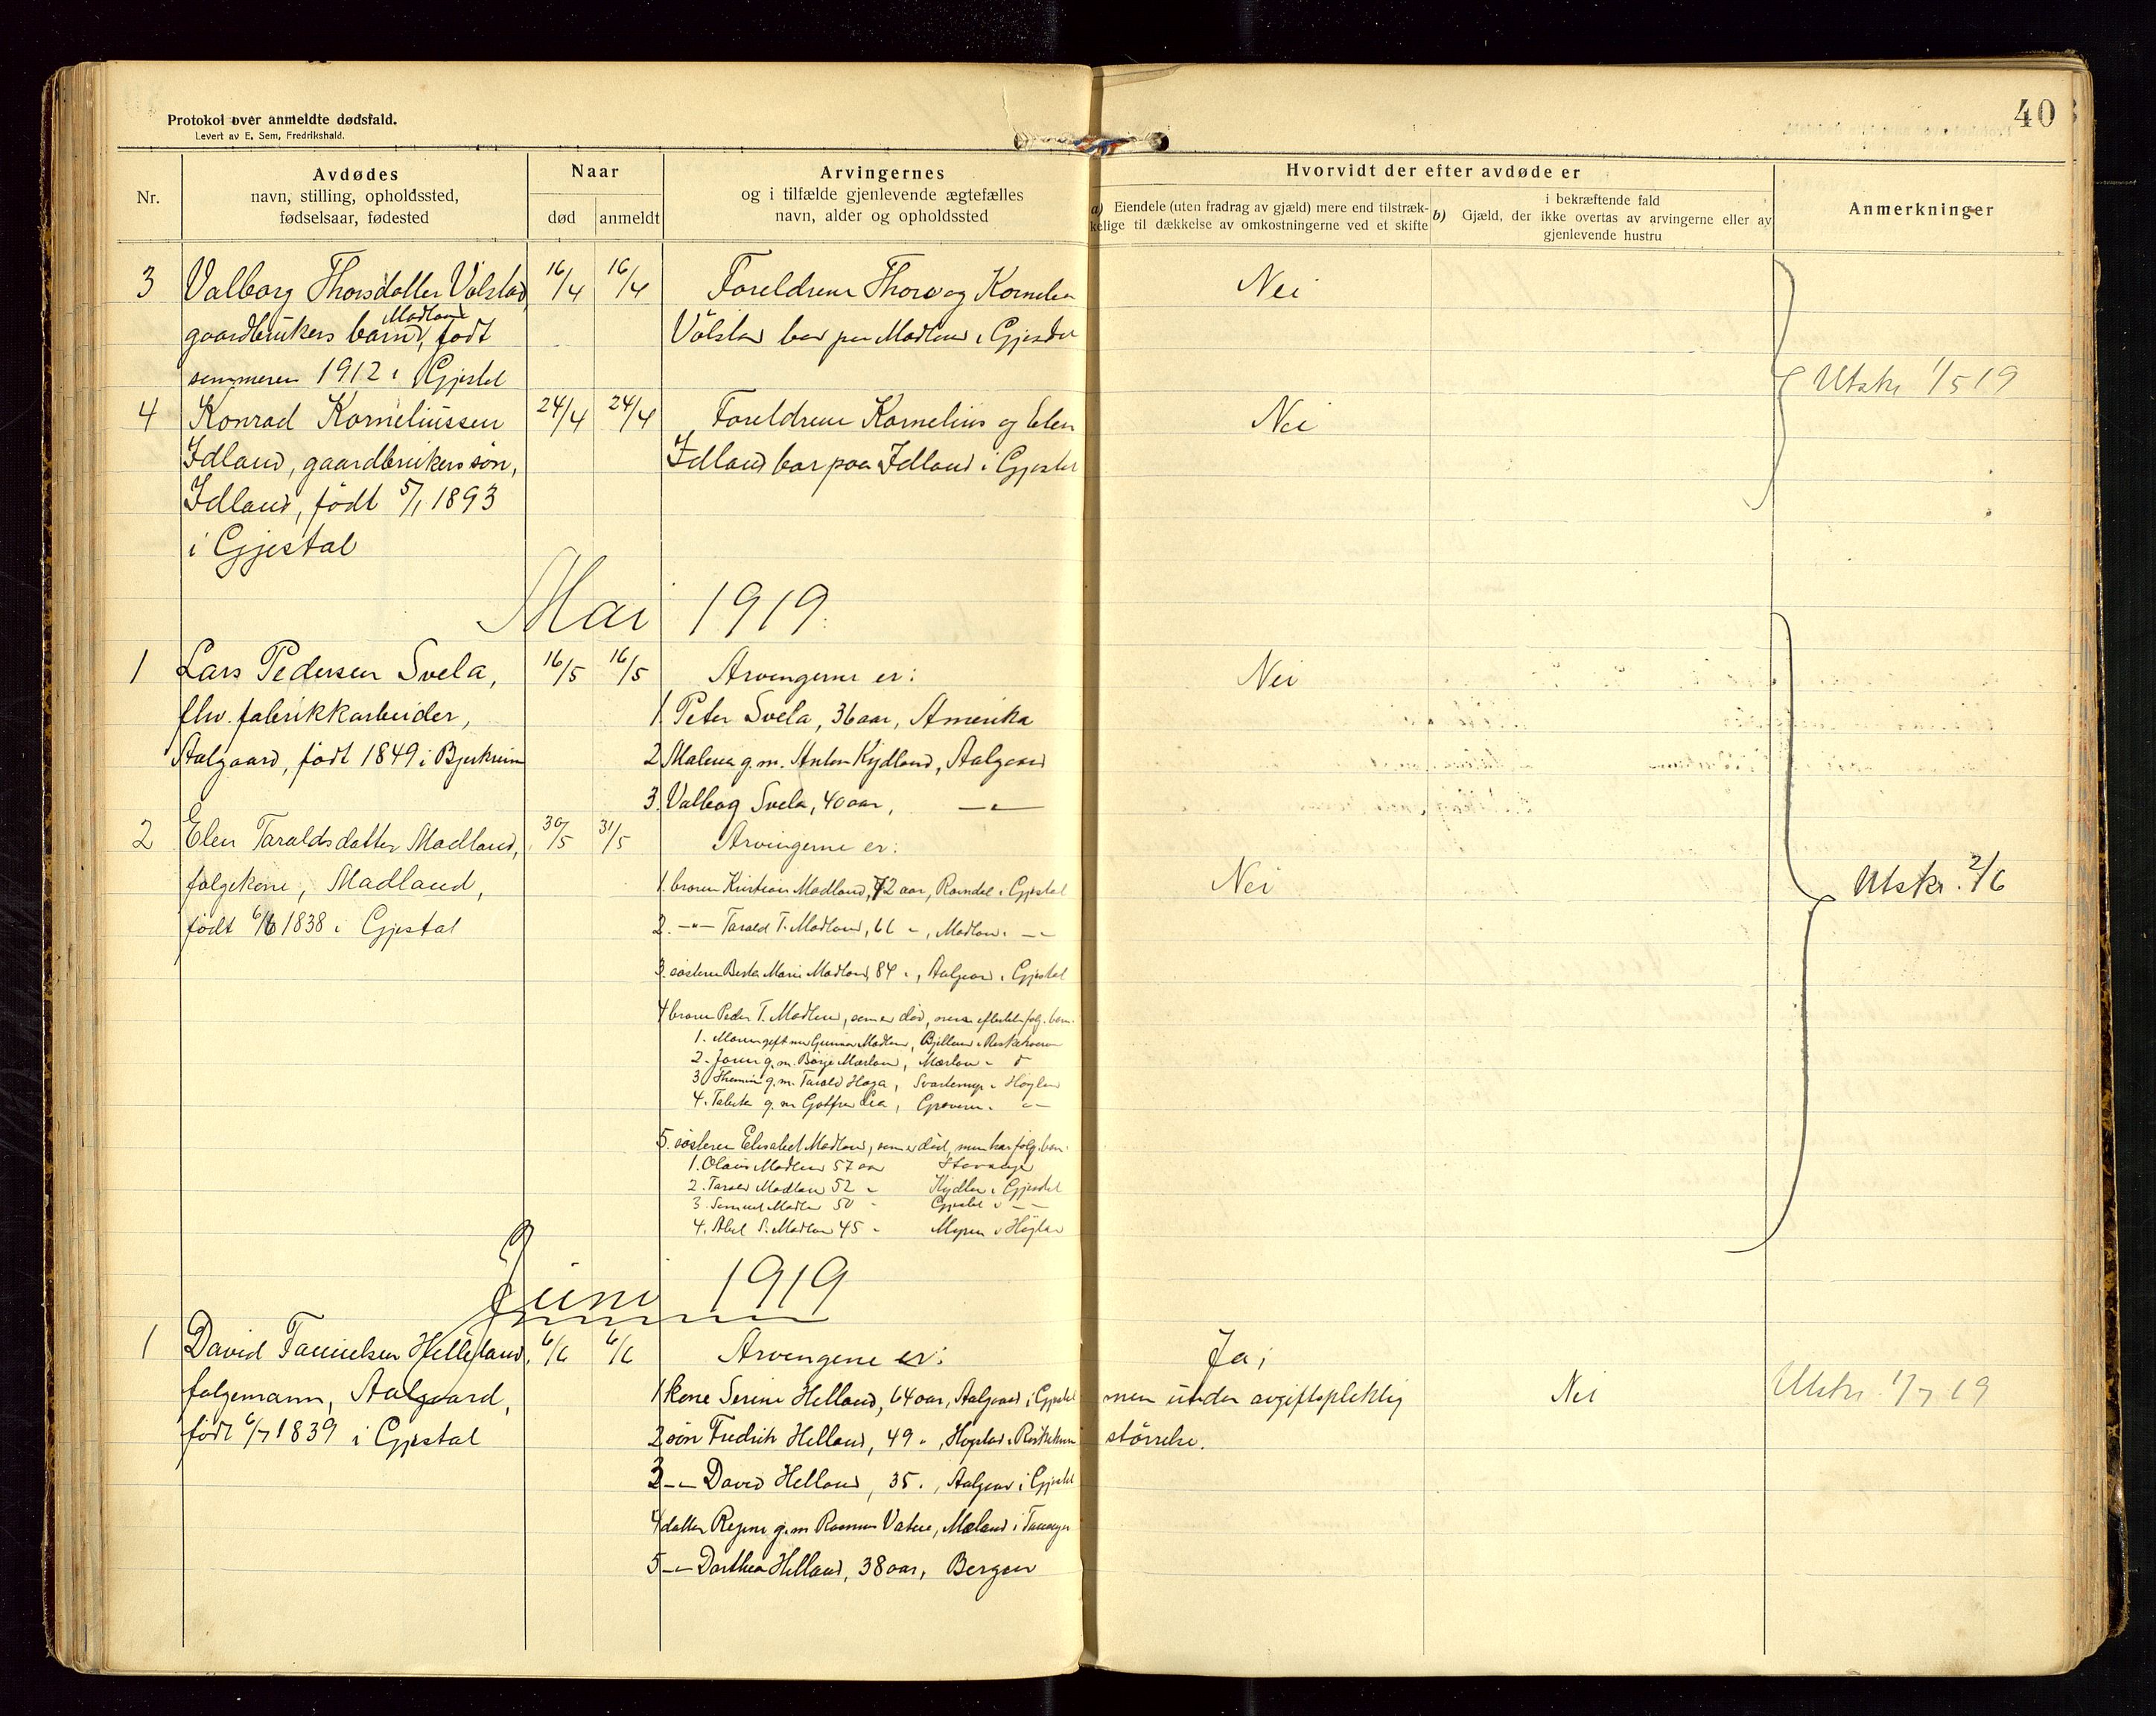 Protokol over anmeldte dødsfald.
Levert av E. Sem, Fredrikshald.
40
Nr.
Avdødes
navn, stilling, opholdssted,
fødselsaar, fødested
Naar
død
anmeldt
Arvingernes
og i tilfælde gjenlevende ægtefælles
navn, alder og opholdssted
Hvorvidt der efter avdøde er
a) Eiendele (uten fradrag av gjæld) mere end tilstræk-
kelige til dækkelse av omkostningerne ved et skifte
i bekræftende fald
b) Gjæld, der ikke overtas av arvingerne eller av
gjenlevende hustru
Anmerkninger
3 Valborg Thorsdatter Vølstad, 16/4 16/4 Foreldrene Thore og Kornelia Nei
Madland
gaardbrukers barn, født Vølstad bor paa Madland i Gjestal
sommeren 1912 i Gjestal Utskr 1/5 19
4 Konrad Korneliussen 24/4 24/4 Foreldrene Kornelius og Elen Nei
Idland, gaardbrukers søn, Idland bor paa Idland i Gjestal
Idland, født 5/1 1893
i Gjestal
Mai 1919.
1 Lars Pedersen Svela, 16/5 16/5 Arvingerne er: Nei
fhv. fabrikkarbeider, 1 Peter Svela, 36 aar, Amerika
Aalgaard, født 1849 i Bjerkreim 2 Malena g.m. Anton Kydland, Aalgaard
3. Valborg Svela, 40 aar, —"—
2 Elen Taraldsdatter Madland, 30/5 31/5 Arvingerne er:
folgekone, Madland, 1. broren Kristian Madland, 72 aar, Ravndal i Gjestal Nei Utskr. 2/6
født 6/6 1838 i Gjestal 2. —"— Tarald T. Madland, 66 ", Madland i —"—
3. søsteren Berta Marie Madland, 84 ", Aalgaard i Gjestal
4 broren Peder T. Madland, som er død, efterlat følg. barn.
1. gift m. Gunnar Madland,
2. g.m. Børge Mæland, Mæland
3 g.m. Tarald Haga, i Høyland
4. g.m. —"—
5. søsteren Elisabet Madland, som er død, men har følg. barn.
1. Olaus Madland 57 aar Stavanger
2. Tarald Madland 52 " Kydland i Gjestal
3. Samuel Madland 50 " Gjestal i —"—
4. Abel S. Madland 45 " i Høyland
Juni 1919
1 David Tønnesen Helleland, 6/6 6/6 Arvingene er: Ja;
folgemann, Aalgaard, 1 kone Serine Helland, 64 aar, Aalgaard i Gjestal men under avgiftspliktig Nei Utskr. 1/7 19
født 6/7 1839 i Gjestal 2 søn Fredrik Helland, 49 ", Hogstad i størrelse.
3 —"— David Helland, 35 ", Aalgaard i Gjestal
4 datter Regine g.m. Rasmus Vatne, Mæland i Tananger
5 —"— Dorthea Helland, 38 aar, Bergen